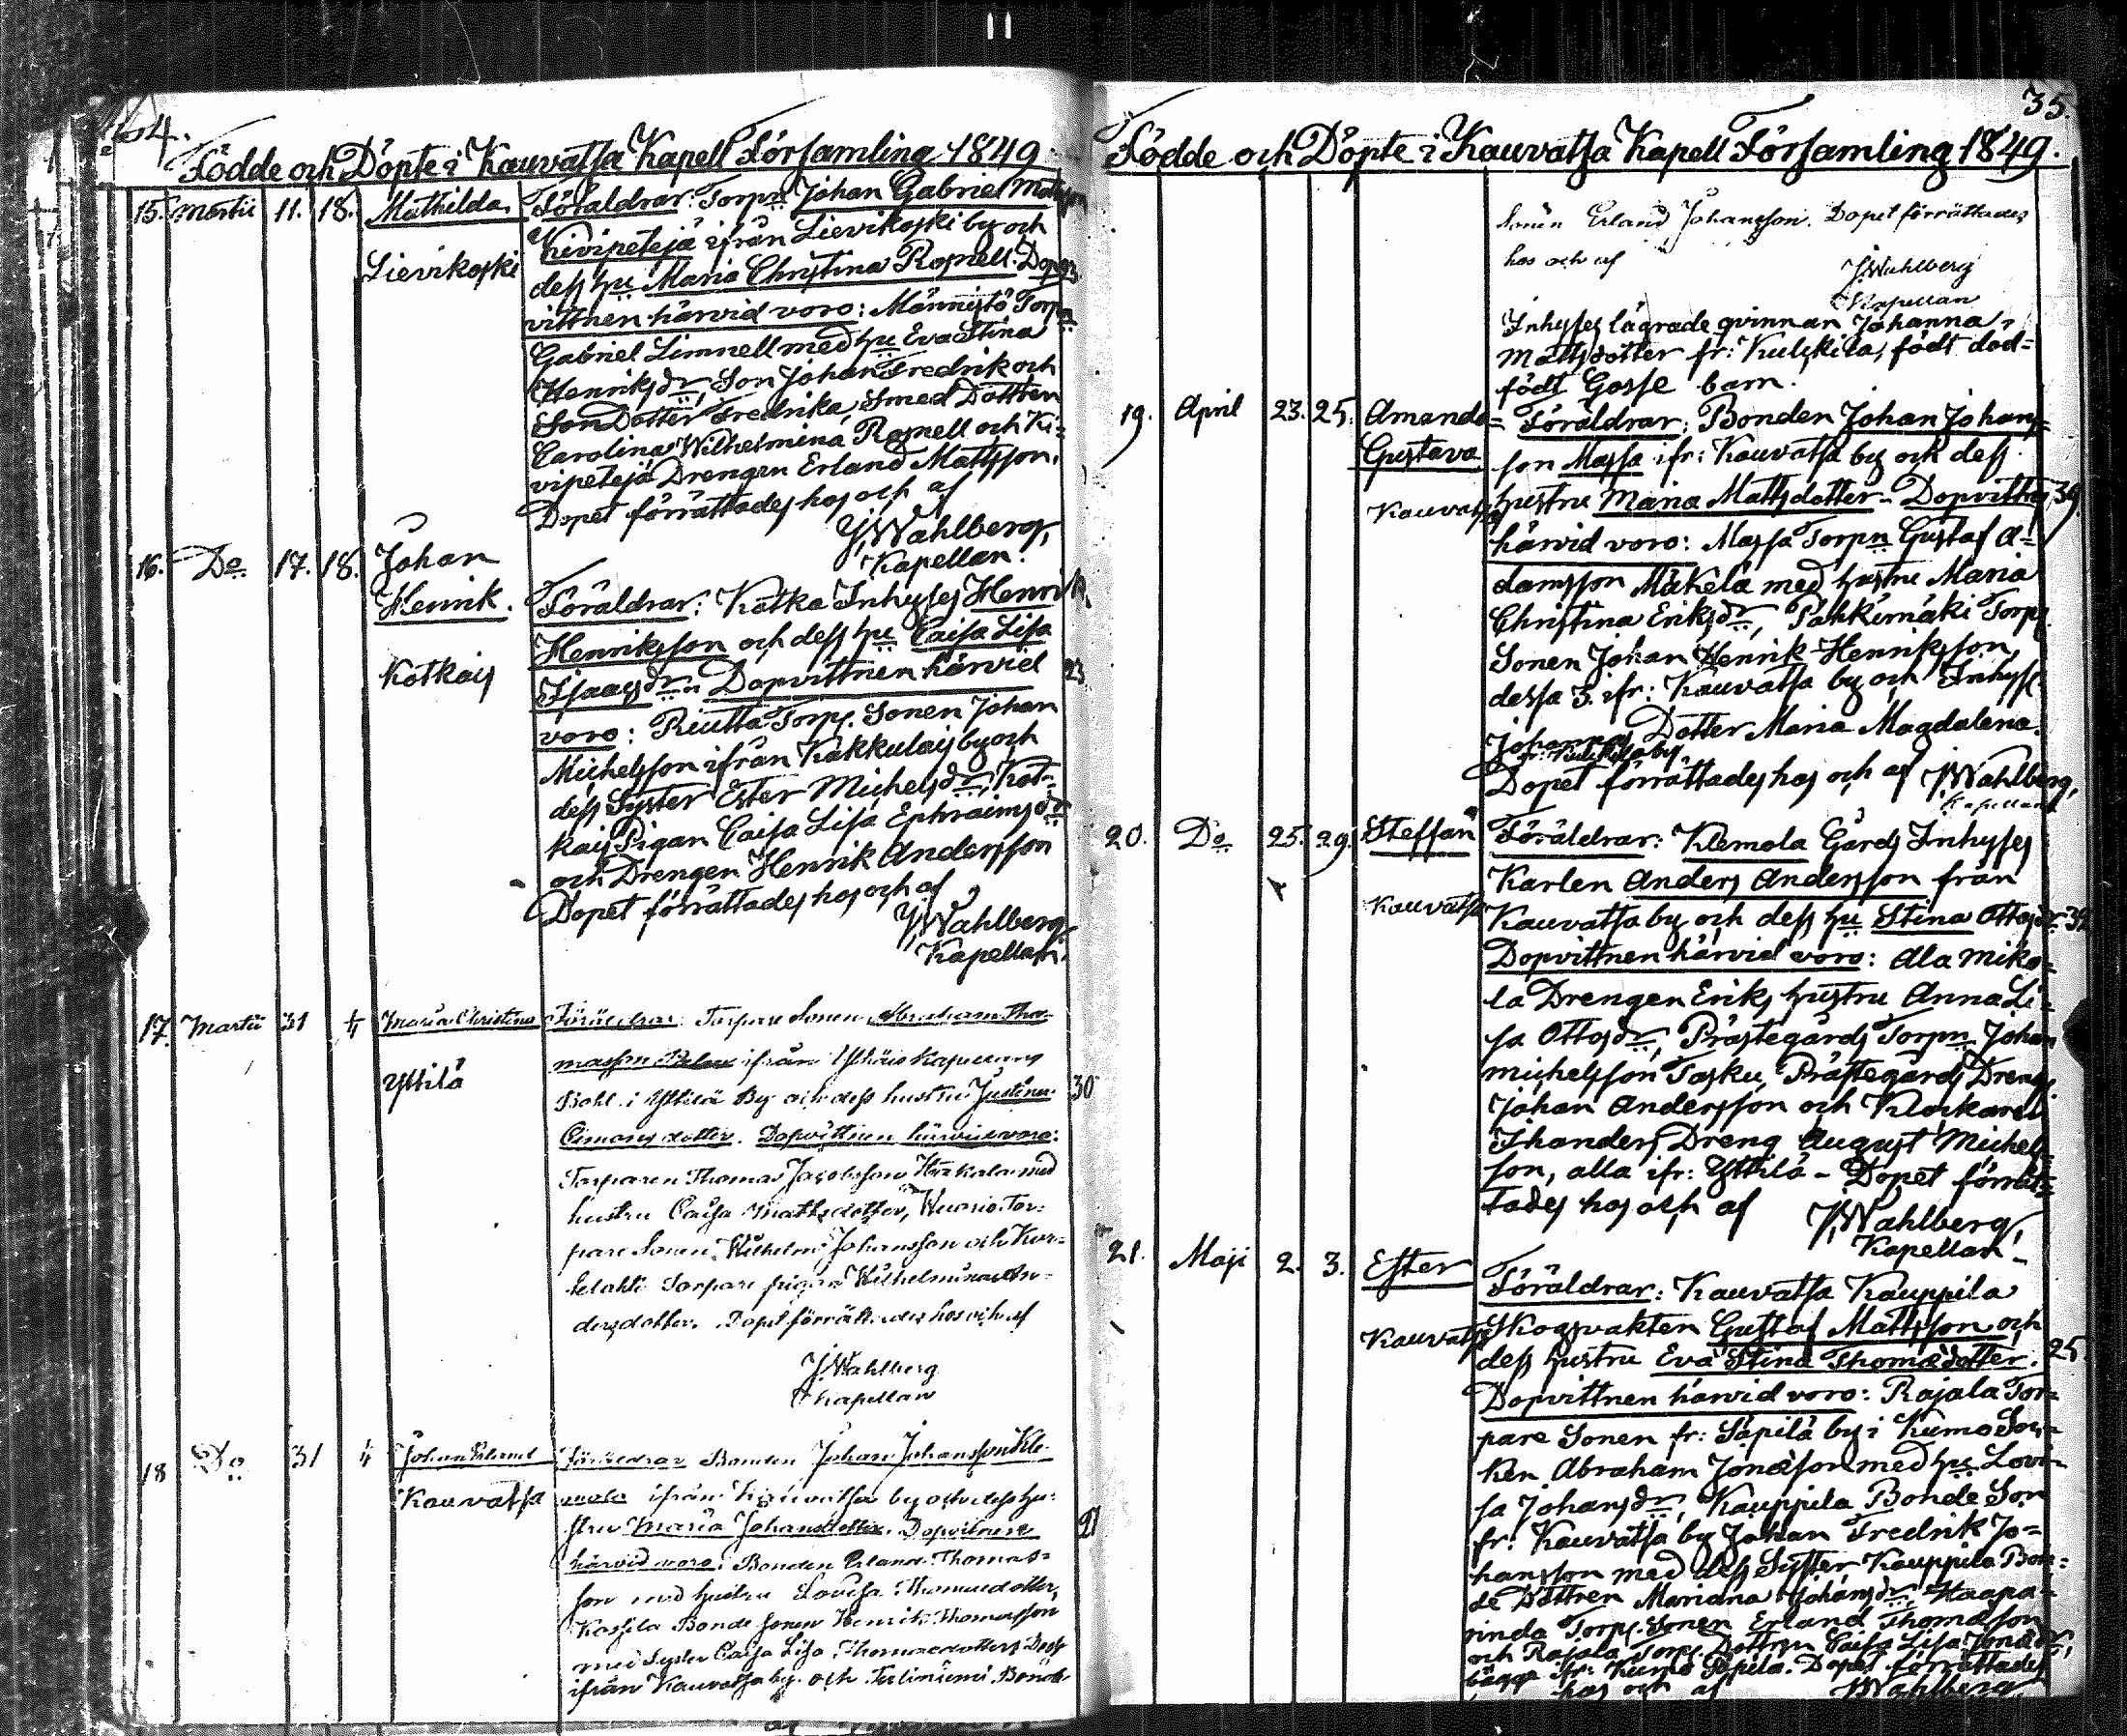 11
34.
Födde och Döpte i Kauvatsa Kapell Församling 1849
15. Martii 11. 18. Mathilda, Föräldrar: Torpn Johan Gabriel Matsson
Kivipetejä ifrån Lievikoski by och
Lievikoski dess hu Maria Christina Rosnell. Dop= 23.
vittnen härvid voro: Männistö Torpn
Gabriel Limnell med hu Eva Stina
Henriksdr, Son Johan Fredrik och
Son Dotter Fredrika, Smed Dottren
Carolina Wilhelmina Rosnell och Ki=
vipetejä Drengen Erland Mattsson.
Dopet förrättades hos och af
J. Wahlberg,
Kapellan.
16. Do 17. 18. Johan
Henrik. Föräldrar: Kotka Inhyses Henrik
Henriksson och dess hu Caisa Lisa
Kotkais Isaacsdr. Dopvittnen härvid 23
voro: Riutta Torps. Sonen Johan
Michelsson ifrån Kakkulais by och
dess Syster Ester Michelsdr, Kot=
kais Pigan Caisa Lisa Ephraimsdr
och Drengen Henrik Andersson
Dopet förrättades hos och af
J. Wahlberg
Kapellan.
17. Martii 31 1/4 Maria Christina Föräldrar: Torpare Sonen Abraham Tho=
masson ifrån Kapellans
Yttilä Bohl i Yttilä By och dess hustru Justina 30
Simonsdotter. Dopvittnen härvid voro:
Torparen Thomas Jacobsson med
hustru Caisa Mattsdotter, Tor=
pare Sonen Wilhelm Johansson och Kor=
Torpare pigan Wilhelmina An=
dersdotter. Dopet förrättades hos och af
J. Wahlberg
Kapellan
18 Do 31 1/4 Johan Erland Föräldrar Bonden Johan Johansson Kle=
Kauvatsa mola ifrån Kauvatsa by och dess hu=
stru Maria Johansdotter. Dopvittnen 27
härvid voro: Bonden Erland Thomas=
son med hustru Lovisa Thomasdotter,
Kassila Bonde Sonen Henrik Thomasson
med Syster Caisa Lisa Thomasdotter, Dessa
ifrån Kauvatsa by och Taliniemi Bonde
35.
Födde och Döpte i Kauvatsa Kapell Församling 1849.
Sonen Erland Johansson. Dopet förrättades
hos och af
J. Wahlberg
Kapellan
Inhyses lägrade qvinnan Johanna
Mattsdotter fr: Kulskila, födt död=
födt Gosse barn.
19. April 23. 25. Amanda Föräldrar: Bonden Johan Johans=
Gustava son Massa ifr: Kauvatsa by och dess
Kauvatsa hustru Maria Mattsdotter. Dopvittnen 39.
härvid voro: Massa Torpn Gustaf A=
damsson Mäkelä med hustru Maria
Christina Eriksdr, Pahkimäki Torps.
Sonen Johan Henrik Henriksson,
dessa 3. ifr: Kauvatsa by och Inhyse
Johannas Dotter Maria Magdalena
fr: Kulskila by
Dopet förrättades hos och af J. Wahlberg,
Kapellan
20. Do 25. 29. Steffan Föräldrar: Klemola Gårds Inhyses
Karlen Anders Andersson från
Kauvatsa Kauvatsa by och dess hu Stina Ottosdr 39
Dopvittnen härvid voro: Ala Miko=
la Drengen Eriks hustru Anna Li=
sa Ottosdr, Prästegårds Torpn Johan
Michelsson Tasku, Prästegårds Dreng
Johan Andersson och Klockaren
Ihanders Dreng August Michels=
son, alla ifr: Yttilä - Dopet förrät=
tades hos och af J. Wahlberg,
Kapellan
21. Maji 2. 3. Ester Föräldrar: Kauvatsa Kauppila
Kauvatsa Skogsvakten Gustaf Mattsson och
dess hustru Eva Stina Thomædotter. 25.
Dopvittnen härvid voro: Rajala Tor=
pare Sonen fr: Säpilä by i Kumo Soc=
ken Abraham Jonæson med hu Lovi=
sa Johansdr, Kauppila Bonde Son
fr: Kauvatsa by Johan Fredrik Jo=
hansson med dess Syster Kauppila Bon=
de Dottren Mariana Johansdr, Haapa=
rinda Torps. Sonen Erland Thomæson
och Rajala Torps. Dottren Caisa Lisa Jonædr,
bägge ifr: Kumo Säpilä. Dopet förrättades
hos och af J. Wahlberg